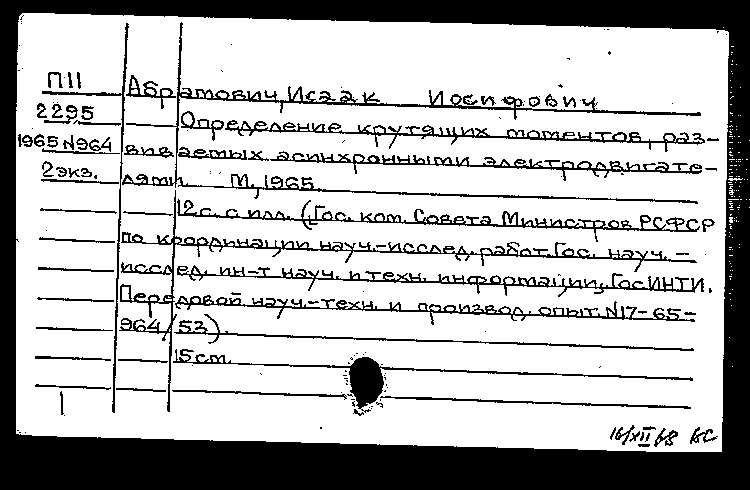 П11 Абрамович, Исаак Иосифович
2295 Определение крутящих моментов, раз-
1965 N964 виваемых асинхронными электродвигате-
2 экз. лями. М, 1965.
12 с. с илл. (Гос. ком. Совета Министров РСФСР
по координации науч.-исслед. работ. Гос. науч.-
исслед. ин-т науч. и техн. информации, ГосИНТИ.
Передовой науч.-техн. и производ. опыт. N17-65-
964/53).
15 см.
16/XII 68 ВС